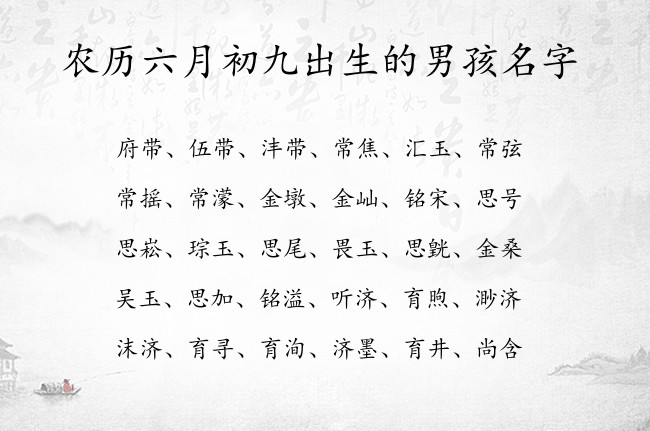 农历六月初九出生的男孩名字
府带、伍带、沣带、常焦、汇玉、常弦
常摇、常濛、金墩、金屾、铭宋、思号
思崧、琮玉、思尾、畏玉、思皝、金桑
吴玉、思加、铭溢、听济、育煦、渺济
沫济、育寻、育洵、济墨、育井、尚含